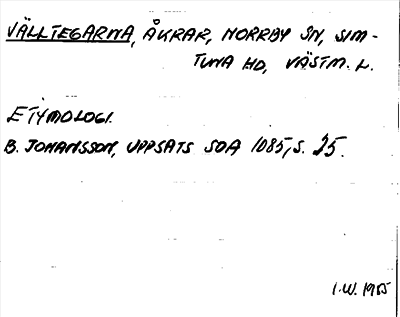 VÄLLTEGARNA, ÅKRAR, NORRBY SN, SIM-
TUNA HD, VÄSTM. L.
ETYMOLOGI.
B. JOHANSSON, UPPSATS SOA 1085, S. 25.
I.W. 1985